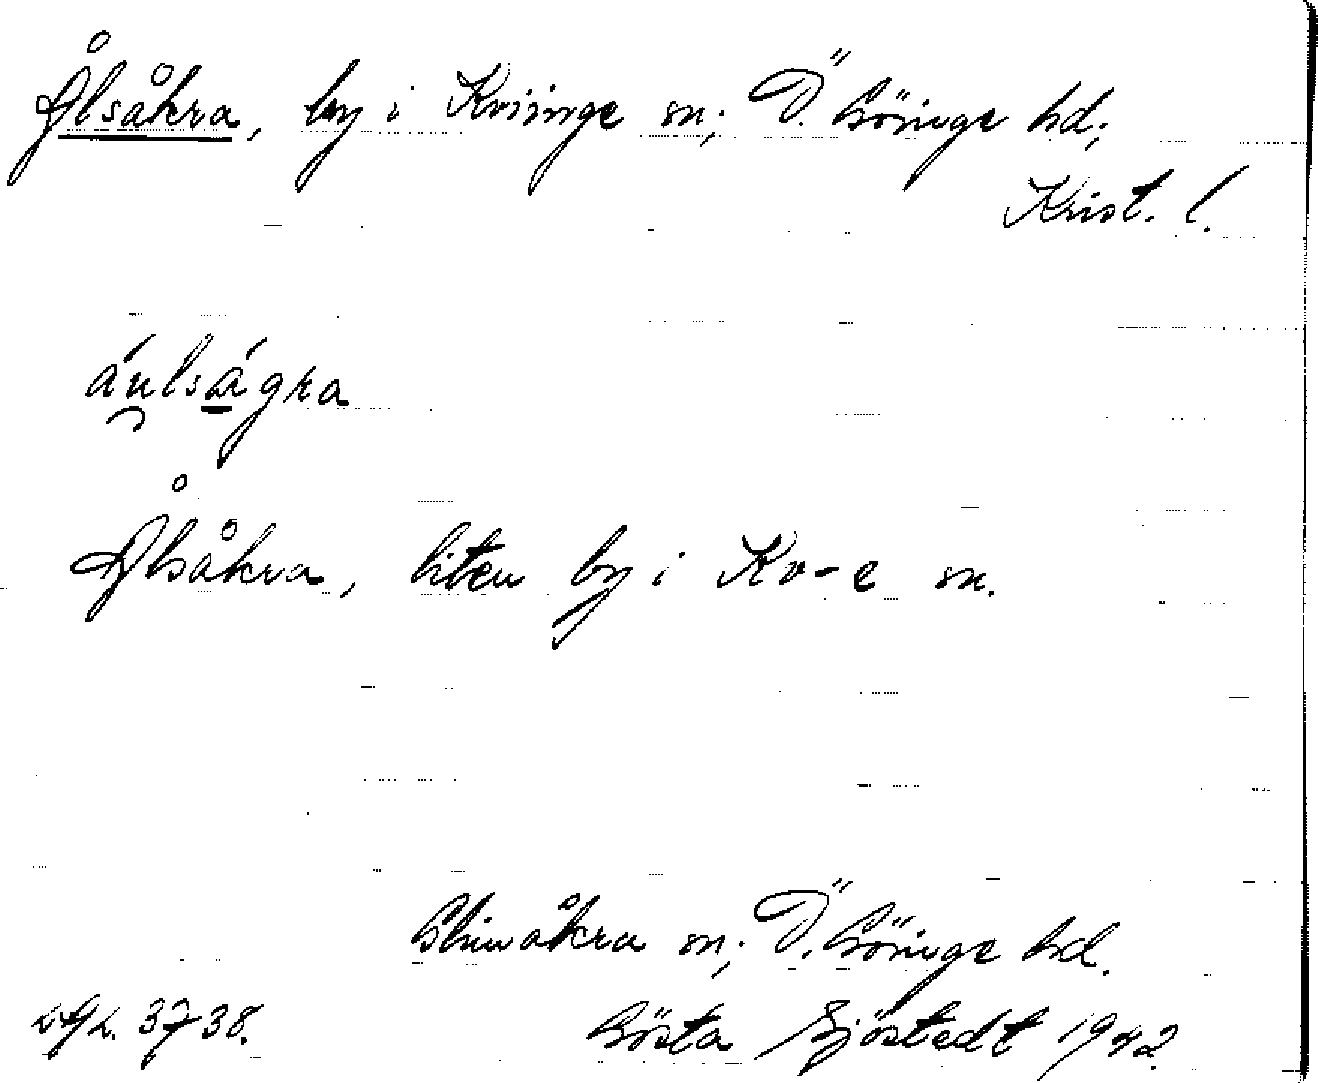 Ålsåkra, by i Kviinge sn; Ö. Göinge hd;
Krist. l.
áu̯lsågra
Ålsåkra, liten by i Kv-e sn.
Glimåkra sn; Ö. Göinge hd.
3738.
Gösta Sjöstedt 1942.